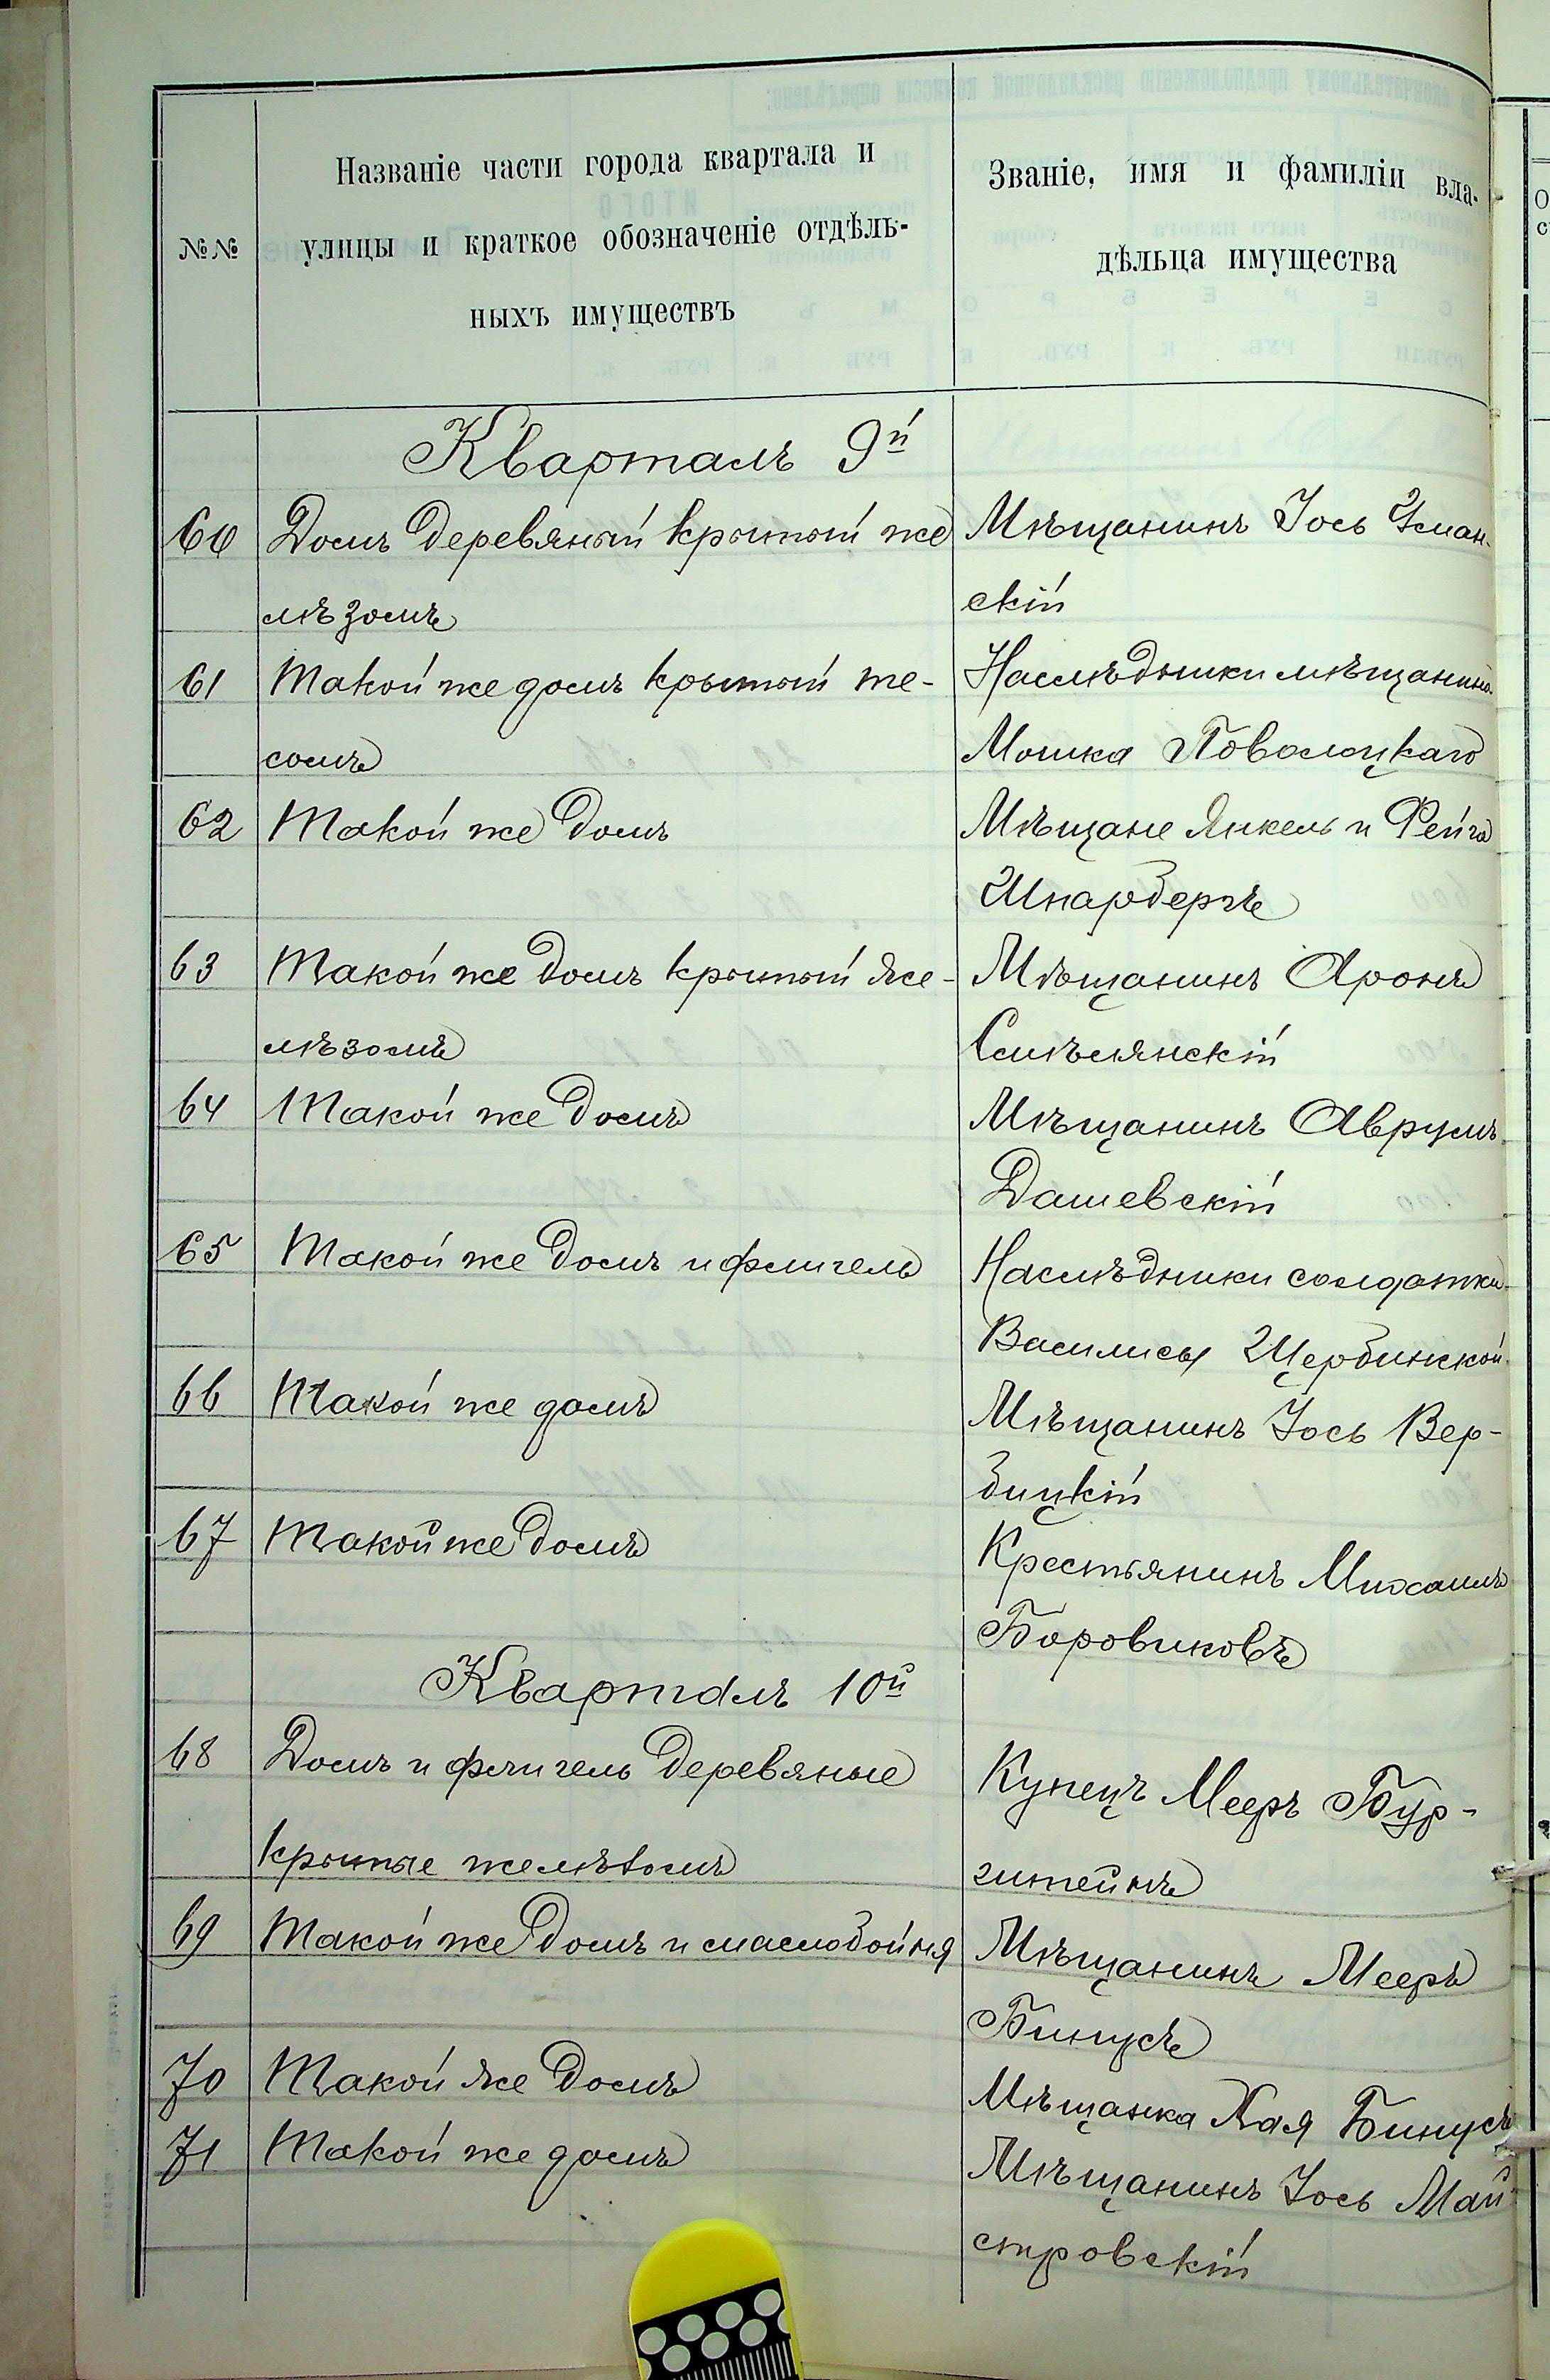 №№
Названіе части города квартала и
улицы и краткое обозначеніе отдѣль-
ныхъ имуществъ
Званіе, имя и фамиліи вла-
дѣльца имущества
Кварталъ 9й
60 Домъ деревяный крытый же Мѣщанинъ Іось Уман-
лѣзомъ скій
61 Такой же домъ крытый те- Наслѣдники мѣщанина
сомъ Мошка Поволоцкаго
62 Такой же домъ Мѣщане Янкель и Фейга
Шпарбергъ
63 Такой же домъ крытый же- Мѣщанинъ Аронъ
лѣзомъ Смѣлянскій
64 Такой же домъ Мѣщанинъ Аврумъ
Дашевскій
65 Такой же домъ и флигель Наслѣдники солдатки
Василисы Щербинской
66 Такой же домъ Мѣщанинъ Іось Вер-
бицкій
67 Такой же домъ Крестьянинъ Михаилъ
Боровиковъ
Кварталъ 10й
68 Домъ и флигель деревяные Купецъ Мееръ Бур-
крытые желѣзомъ гитейнъ
69 Такой же домъ и маслобойня Мѣщанинъ Мееръ
Бинусъ
70 Такой же домъ Мѣщанка Хая Бинусъ
71 Такой же домъ Мѣщанинъ Іось Май
стровскій